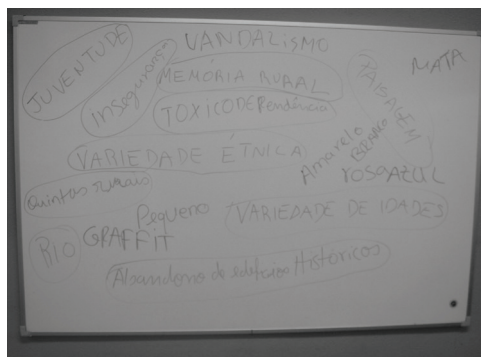 JUVENTUDE
insegurança
VANDALISMO
MEMÓRIA RURAL
TOXICODEPendência
PAISAGEM
MATA
VARIEDADE ÉTNICA
Amarelo
BRANCO
rosa AZUL
Quintas rurais
Pequeno
VARIEDADE DE IDADES
RIO
GRAFFIT
Abandono de edifícios Históricos